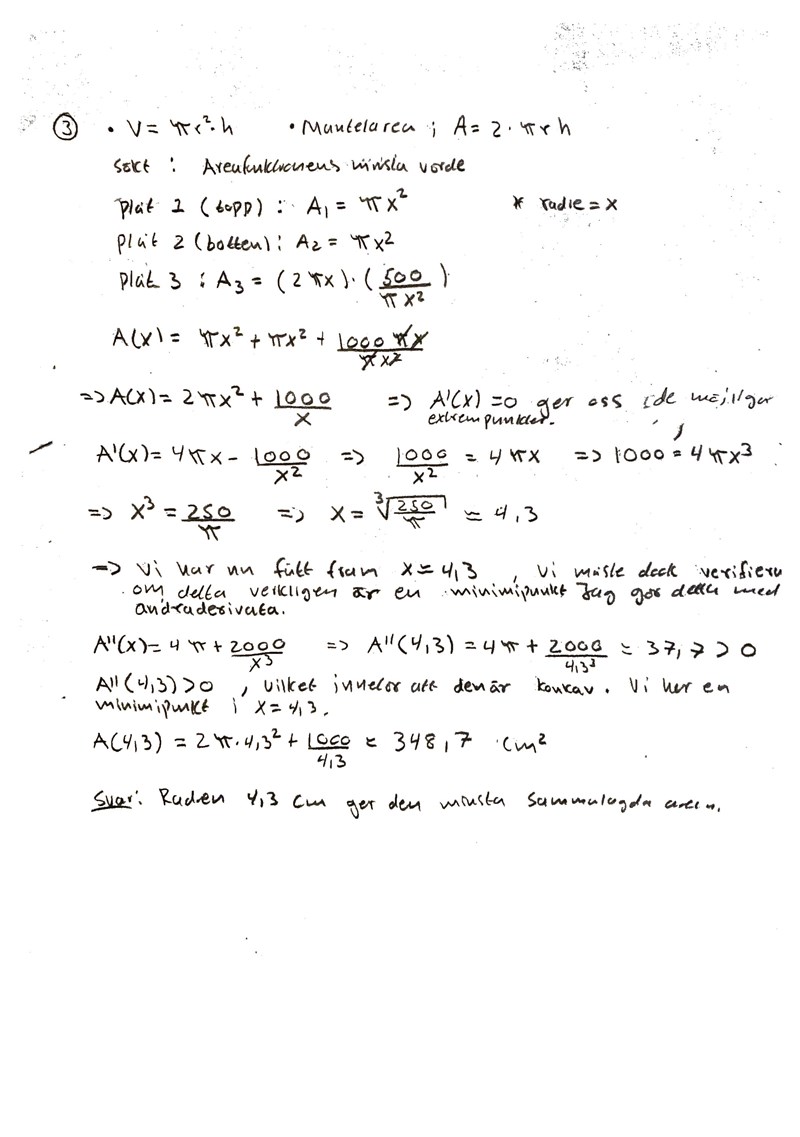 ③ • V = πr²·h • Mantelarea ; A = 2·πrh
Sökt : Areafunktionens minsta värde
plåt 1 (topp) : A₁ = πx² * radie = x
plåt 2 (botten) : A₂ = πx²
plåt 3 : A₃ = (2πx)·(500/πx²)
A(x) = πx² + πx² + 1000πx/πx²
=> A(x) = 2πx² + 1000/x => A'(x) = 0 ger oss de möjliga
extrempunkter.
A'(x) = 4πx - 1000/x² => 1000/x² = 4πx => 1000 = 4πx³
=> x³ = 250/π => x = ∛(250/π) ≈ 4,3
=> Vi har nu fått fram x ≈ 4,3 , vi måste dock verifiera
om detta verkligen är en minimipunkt Jag gör detta med
andraderivata.
A''(x) = 4π + 2000/x³ => A''(4,3) = 4π + 2000/4,3³ ≈ 37,7 > 0
A''(4,3) > 0 , vilket innebär att den är konkav. Vi har en
minimipunkt i x = 4,3.
A(4,3) = 2π·4,3² + 1000/4,3 ≈ 348,7 cm²
Svar: Radien 4,3 cm ger den minsta sammanlagda arean.